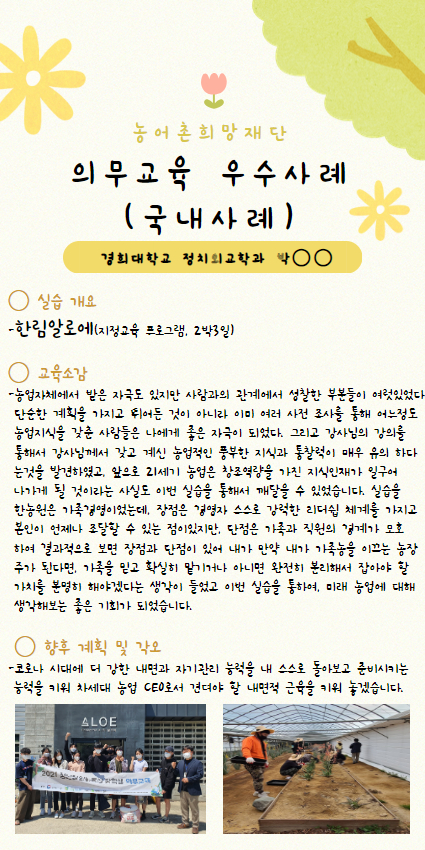 농어촌희망재단
의무교육 우수사례
(국내사례)
경희대학교 정치외교학과 박○○
○ 실습 개요
-한림알로에(지정교육 프로그램, 2박3일)
○ 교육소감
-농업자체에서 받은 자극도 있지만 사람과의 관계에서 성찰한 부분들이 여럿있었다
단순한 계획을 가지고 뛰어든 것이 아니라 이미 여러 사전 조사를 통해 어느정도
농업지식을 갖춘 사람들은 나에게 좋은 자극이 되었다. 그리고 강사님의 강의를
통해서 강사님께서 갖고 계신 농업적인 풍부한 지식과 통찰력이 매우 유의 하다
는것을 발견하였고, 앞으로 21세기 농업은 창조역량을 가진 지식인재가 일구어
나가게 될 것이라는 사실도 이번 실습을 통해서 깨달을 수 있었습니다. 실습을
한농원은 가족경영이었는데, 장점은 경영자 스스로 강력한 리더쉽 체계를 가지고
본인이 언제나 조달할 수 있는 점이있지만, 단점은 가족과 직원의 경계가 모호
하여 결과적으로 보면 장점과 단점이 있어 내가 만약 내가 가족농을 이끄는 농장
주가 된다면, 가족을 믿고 확실히 맡기거나 아니면 완전히 분리해서 잡아야 할
가치를 분명히 해야겠다는 생각이 들었고 이번 실습을 통하여, 미래 농업에 대해
생각해보는 좋은 기회가 되었습니다.
○ 향후 계획 및 각오
-코로나 시대에 더 강한 내면과 자기관리 능력을 내 스스로 돌아보고 준비시키는
능력을 키워 차세대 농업 CEO로서 견뎌야 할 내면적 근육을 키워 놓겠습니다.
ALOE
2021